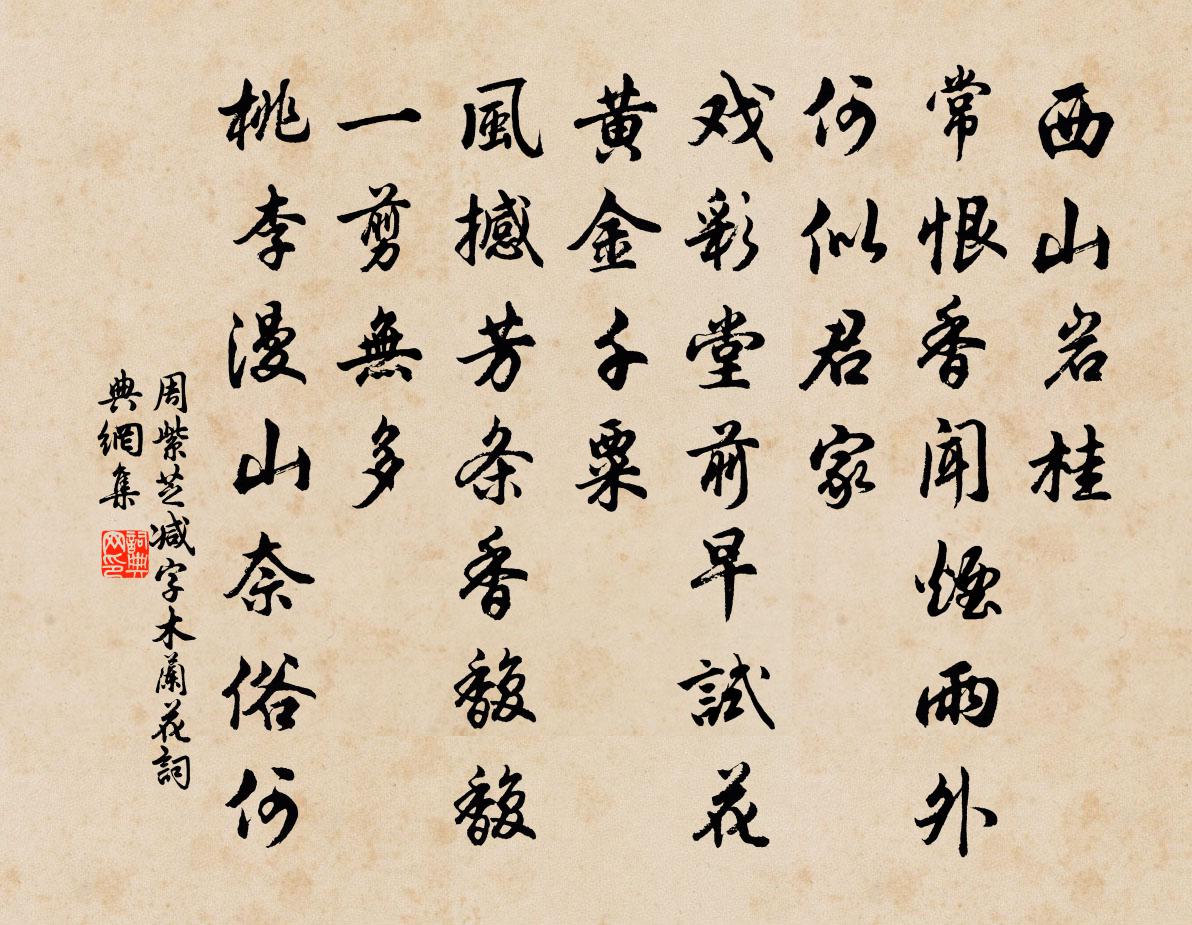 西山岩桂
常恨香闻煙雨外
何似君家
戏彩堂前早試花
黄金千粟
風撼芳条香馥馥
一剪無多
桃李漫山奈俗何
周紫芝减字木蘭花詞
典網集
詞典网印